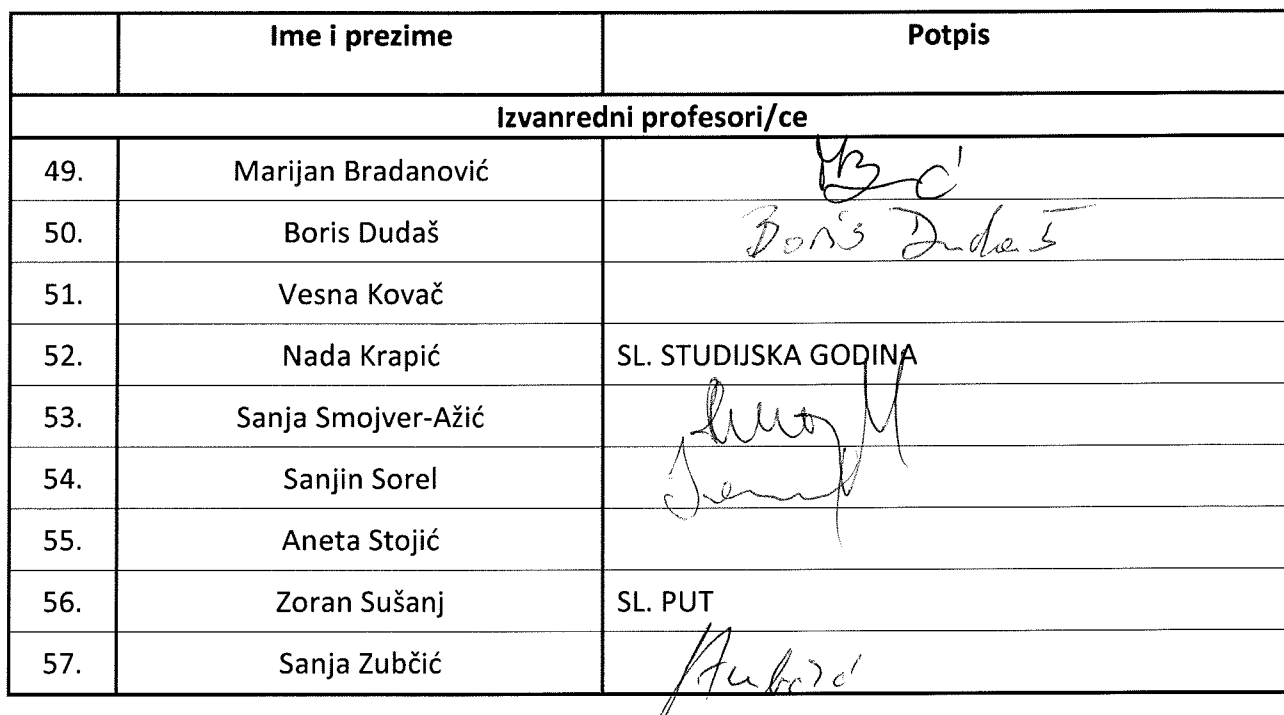 Ime i prezime Potpis
Izvanredni profesori/ce
49. Marijan Bradanović
50. Boris Dudaš Boris Dudaš
51. Vesna Kovač
52. Nada Krapić SL. STUDIJSKA GODINA
53. Sanja Smojver-Ažić
54. Sanjin Sorel
55. Aneta Stojić
56. Zoran Sušanj SL. PUT
57. Sanja Zubčić